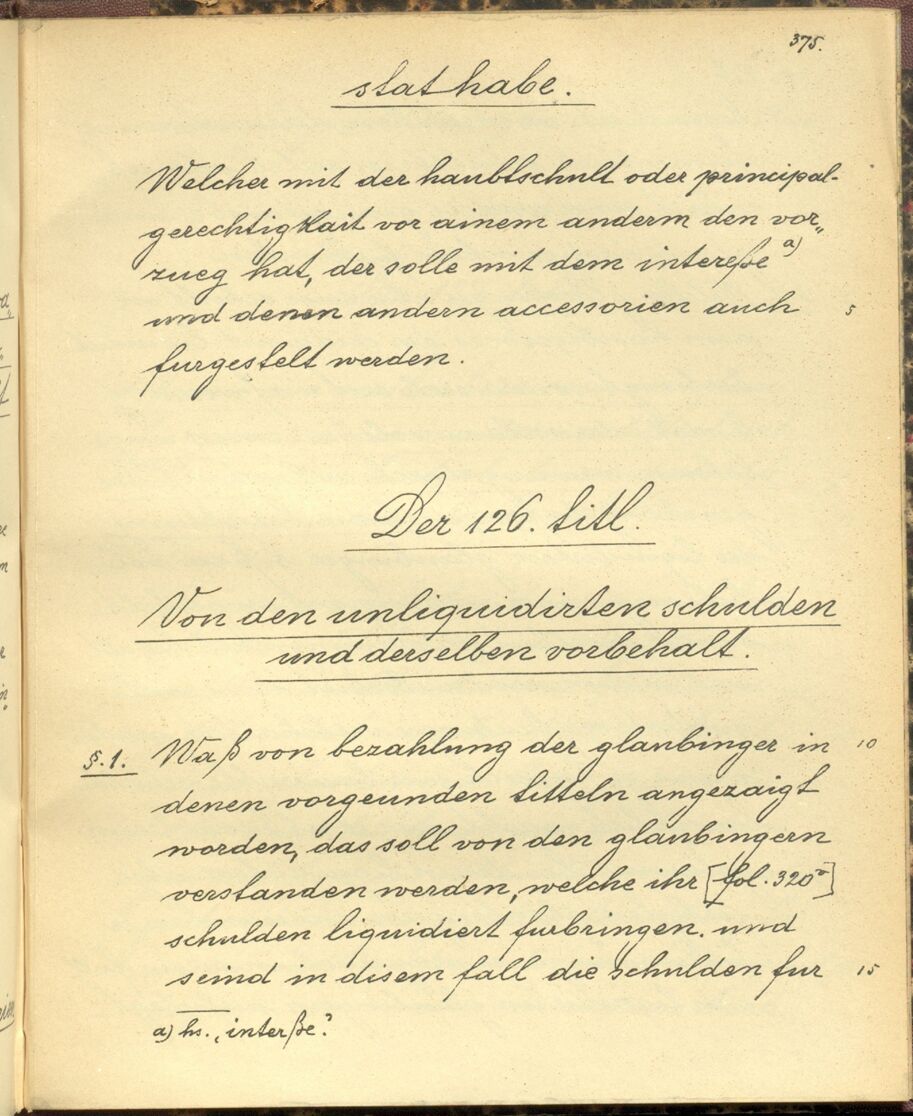 375.
stat habe.
Welcher mit der haubtschult oder principal-
gerechtigkait vor ainem anderm den vor„
zueg hat, der solle mit dem intereße a)
und denen andern accessorien auch 5
furgestelt werden.
Der 126. titl.
Von den unliquidirten schulden
und derselben vorbehalt.
§. 1. Waß von bezahlung der glaubinger in 10
denen vorgeunden titteln angezaigt
worden, das soll von den glaubingern
verstanden werden, welche ihr [fol. 320v]
schulden liquidiert furbringen. und
seind in disem fall die schulden fur 15
a) hs. „interße“.